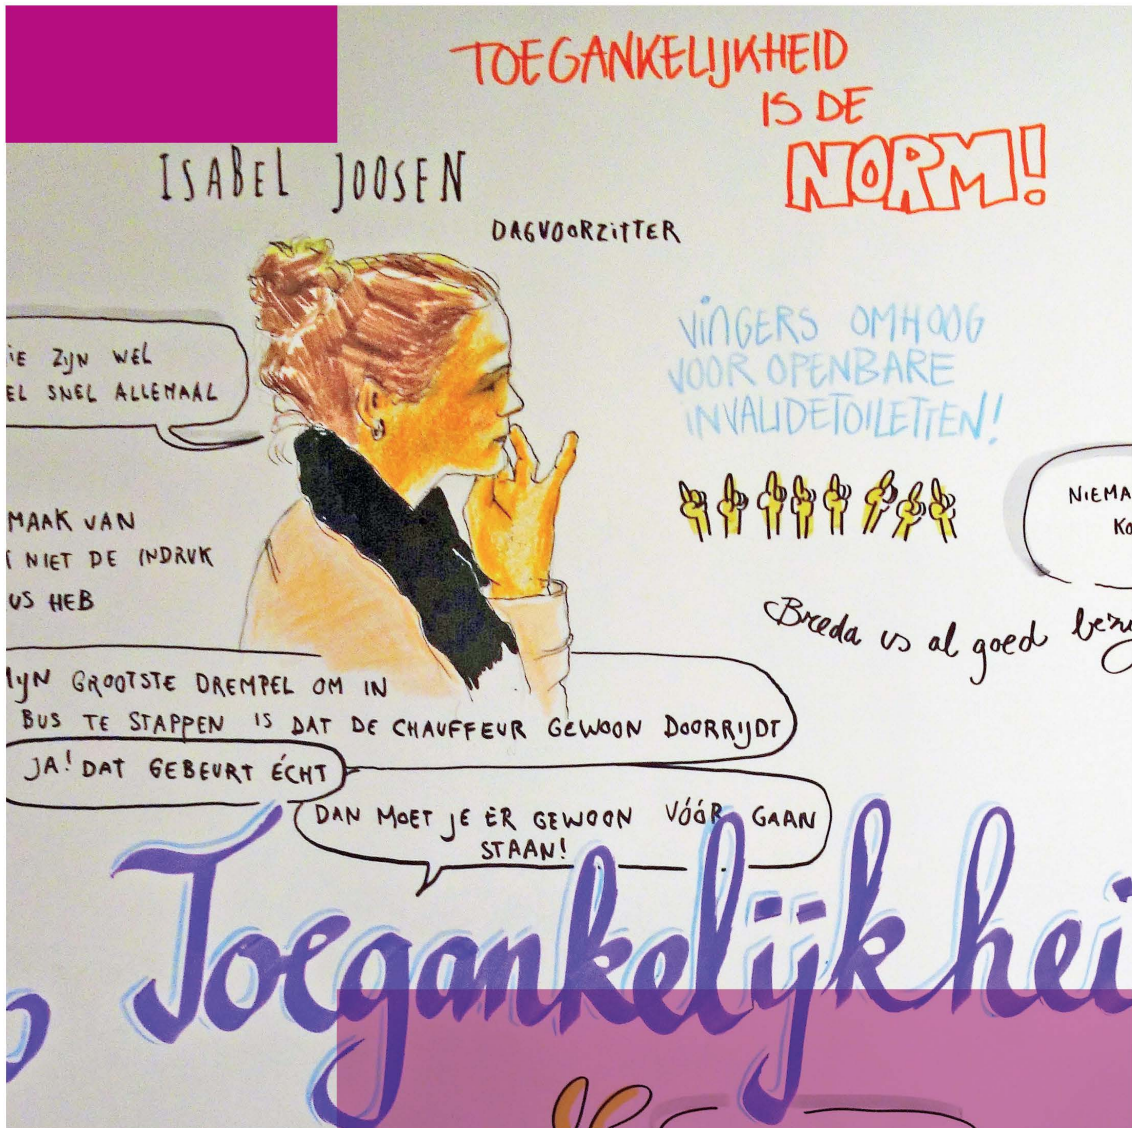 TOEGANKELIJKHEID
IS DE
NORM!
ISABEL JOOSEN
DAGVOORZITTER
ZIJN WEL
SNEL ALLEMAAL
VINGERS OMHOOG
VOOR OPENBARE
INVALIDETOILETTEN!
MAAK VAN
NIET DE INDRUK
HEB
Breda is al goed
GROOTSTE DREMPEL OM IN
BUS TE STAPPEN IS DAT DE CHAUFFEUR GEWOON DOORRIJDT
JA! DAT GEBEURT ÉCHT
DAN MOET JE ER GEWOON VÓÓR GAAN
STAAN!
Toegankelijkhei